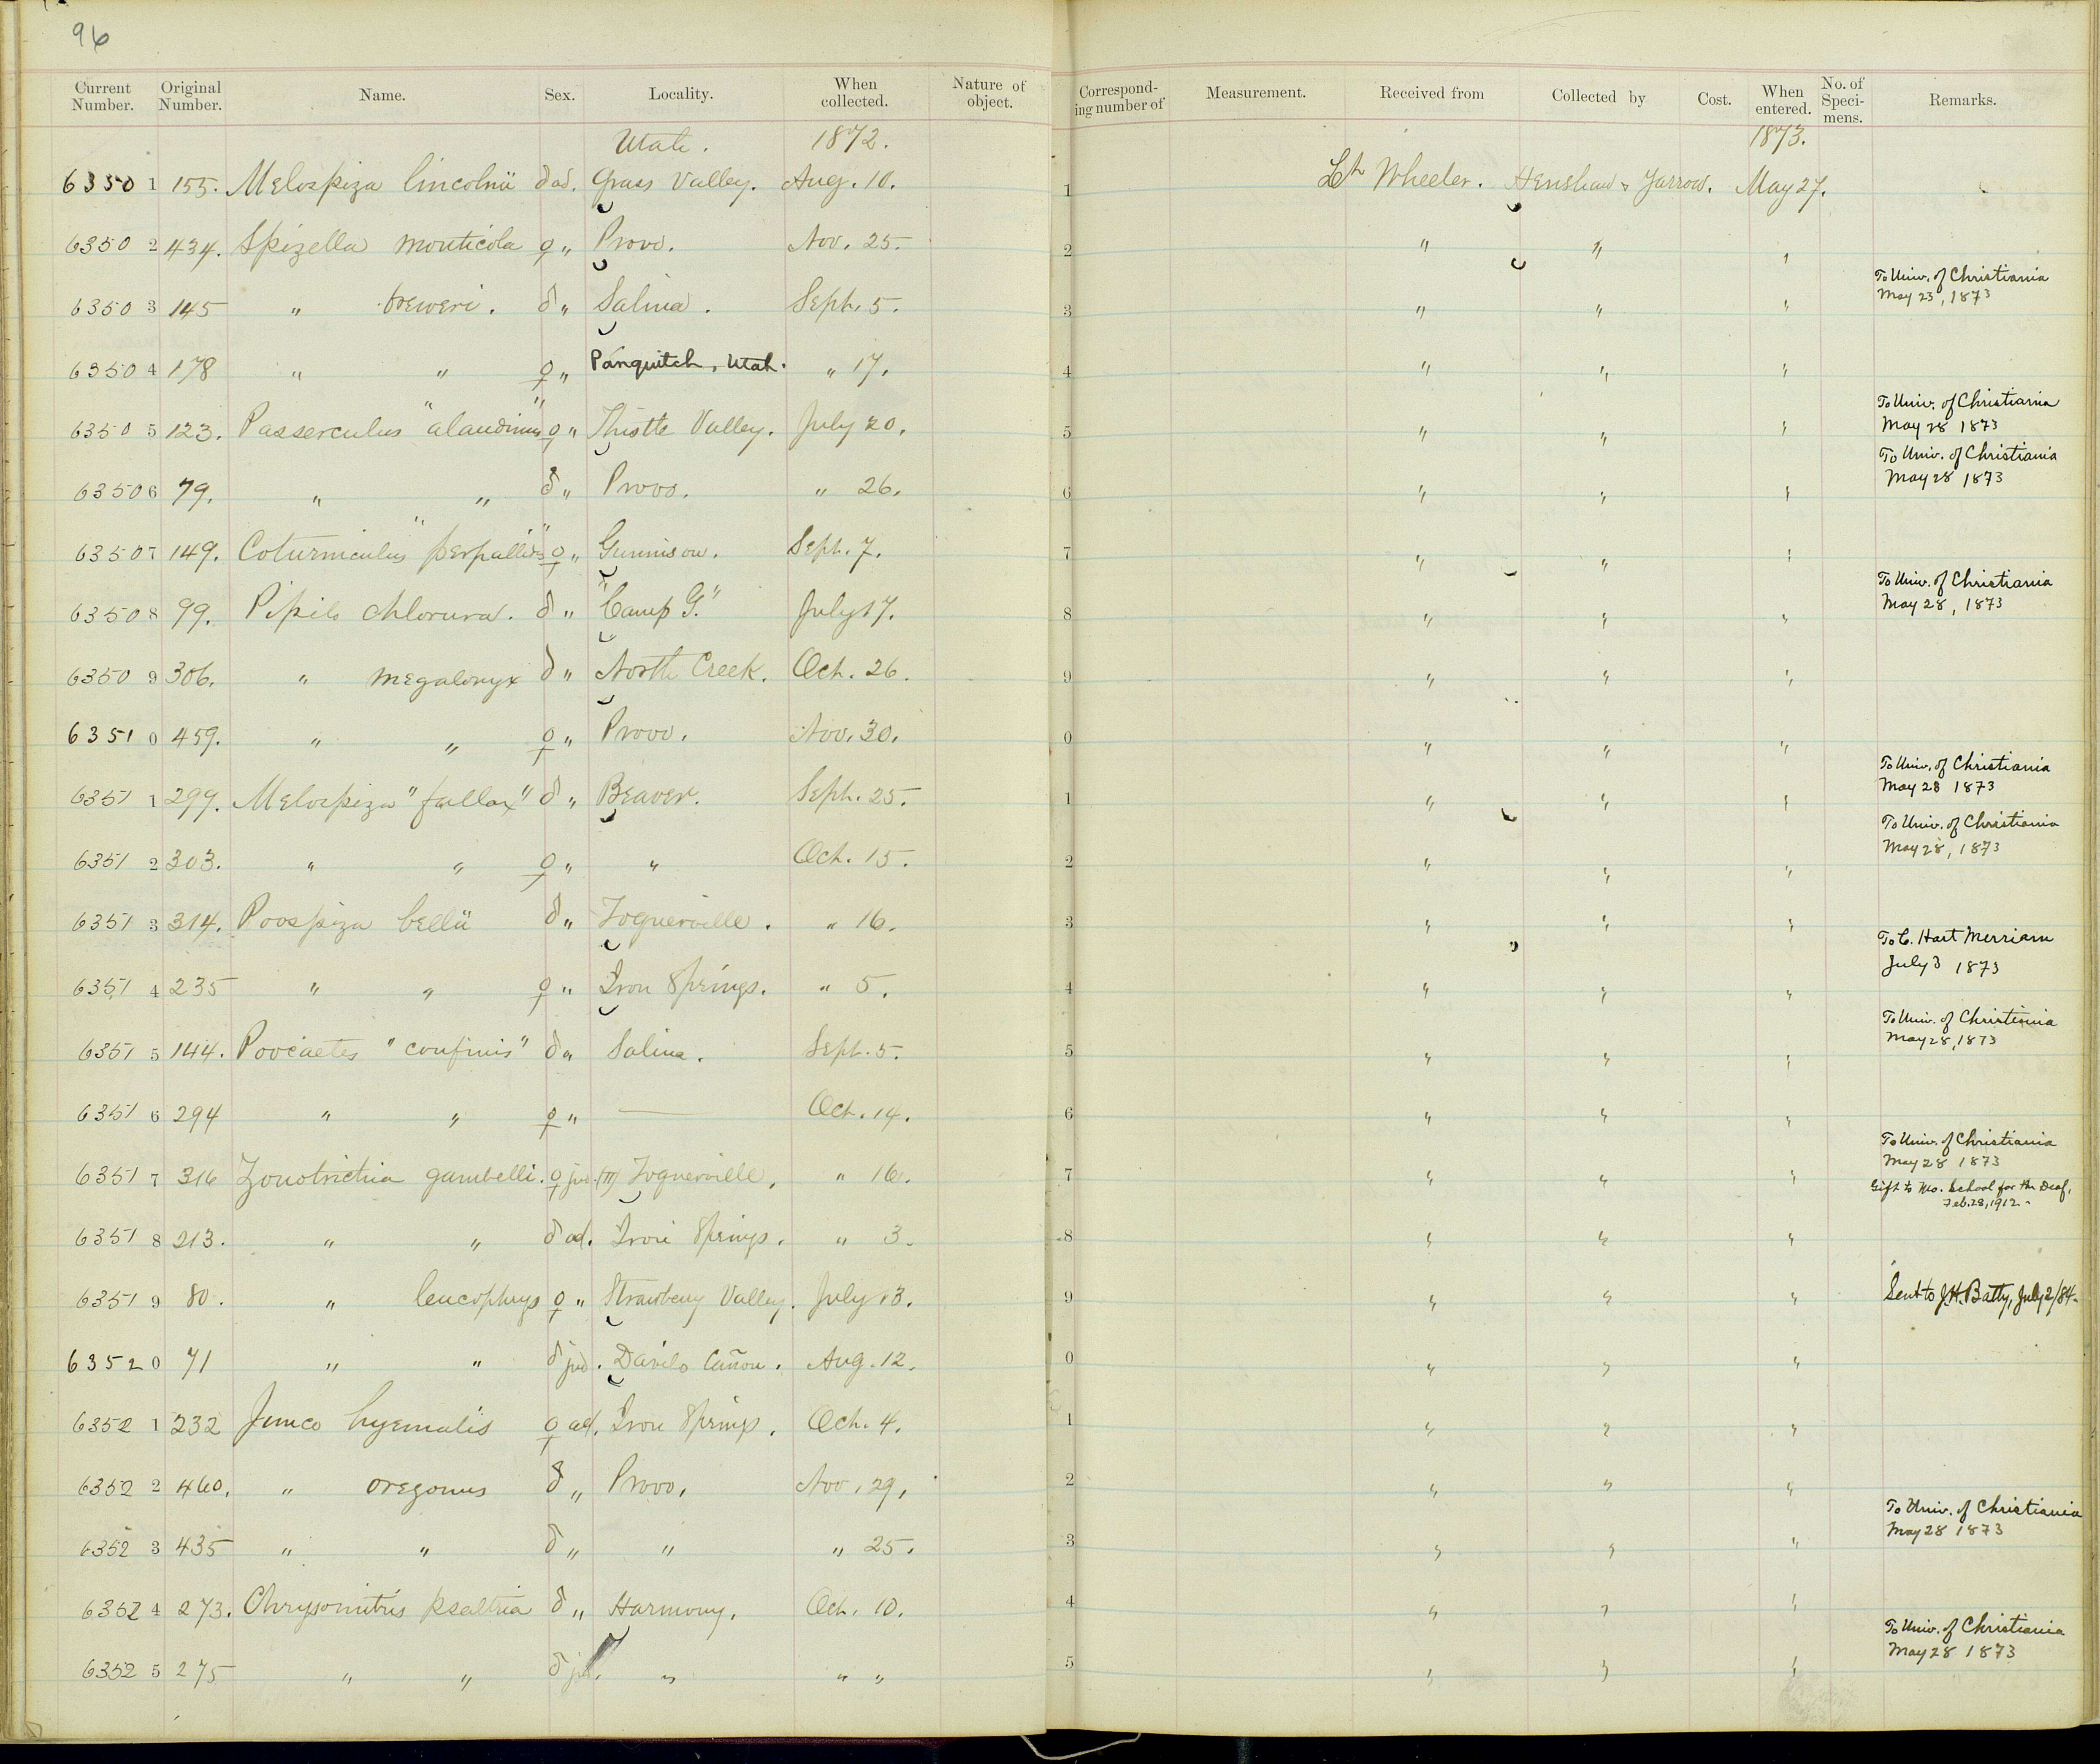 96
Current Number. Original Number. Name. Sex. Locality. When collected. Nature of object. Correspond-ing number of Measurement. Received from Collected by Cost. When entered. No. of Speci-mens. Remarks.
Utah. 1872. 1873.
63501 155. Melospiza lincolnii ♂ ad. Grass Valley. Aug. 10. 1 Lt Wheeler. Henshaw & Yarrow. May 27.
63502 434. Spizella monticola ♀ " Provo. Nov. 25. 2 " " "
63503 145 " breweri. ♂ " Salina. Sept. 5. 3 " " " To Univ. of Christiania May 23, 1873
63504 178 " " ♀ " Panquitch, Utah. " 17. 4 " " "
63505 123. Passerculus "alaudinus" ♀ " Thistle Valley. July 20. 5 " " " To Univ. of Christiania May 28 1873
63506 79. " " ♂ " Provo. " 26. 6 " " " To Univ. of Christiania May 28 1873
63507 149. Coturniculus "perpallidus" ♀ " Gunnison. Sept. 7. 7 " " "
63508 99. Pipilo chlorura. ♂ " "Camp G." July 17. 8 " " " To Univ. of Christiania May 28, 1873
63509 306. " megalonyx ♂ " North Creek. Oct. 26. 9 " " "
63510 459. " " ♀ " Provo. Nov. 30. 0 " " "
63511 299. Melospiza "fallax" ♂ " Beaver. Sept. 25. 1 " " " To Univ. of Christiania May 28 1873
63512 303. " " ♀ " " Oct. 15. 2 " " " To Univ. of Christiania May 28, 1873
63513 314. Poospiza bellii ♂ " Toquerville. " 16. 3 " " "
63514 235 " " ♀ " Iron Springs. " 5. 4 " " " To C. Hart Merriam July 3 1873
63515 144. Poocaetes "confinis" ♂ " Salina. Sept. 5. 5 " " " To Univ. of Christiania May 28, 1873
63516 294 " " ♀ " — Oct. 14. 6 " " "
63517 316 Zonotrichia gambelli. ♀ juv. Toquerville. " 16. 7 " " " To Univ. of Christiania May 28 1873
Gift to Mo. School for the Deaf, Feb. 28, 1912.
63518 213. " " ♂ ad. Iron Springs. " 3. 8 " " "
63519 80. " leucophrys ♀ " Strawberry Valley. July 13. 9 " " " Sent to J.H. Batty, July 2/84.
63520 71 " " ♂ juv. Cañon. Aug. 12. 0 " " "
63521 232 Junco hyemalis ♀ ad. Iron Springs. Oct. 4. 1 " " "
63522 460. " oregonus ♂ " Provo. Nov. 29. 2 " " "
63523 435 " " ♂ " " " 25. 3 " " " To Univ. of Christiania May 28 1873
63524 273. Chrysomitris psaltria ♂ " Harmony. Oct. 10. 4 " " "
63525 275 " " ♂ " " " 5 " " " To Univ. of Christiania May 28 1873